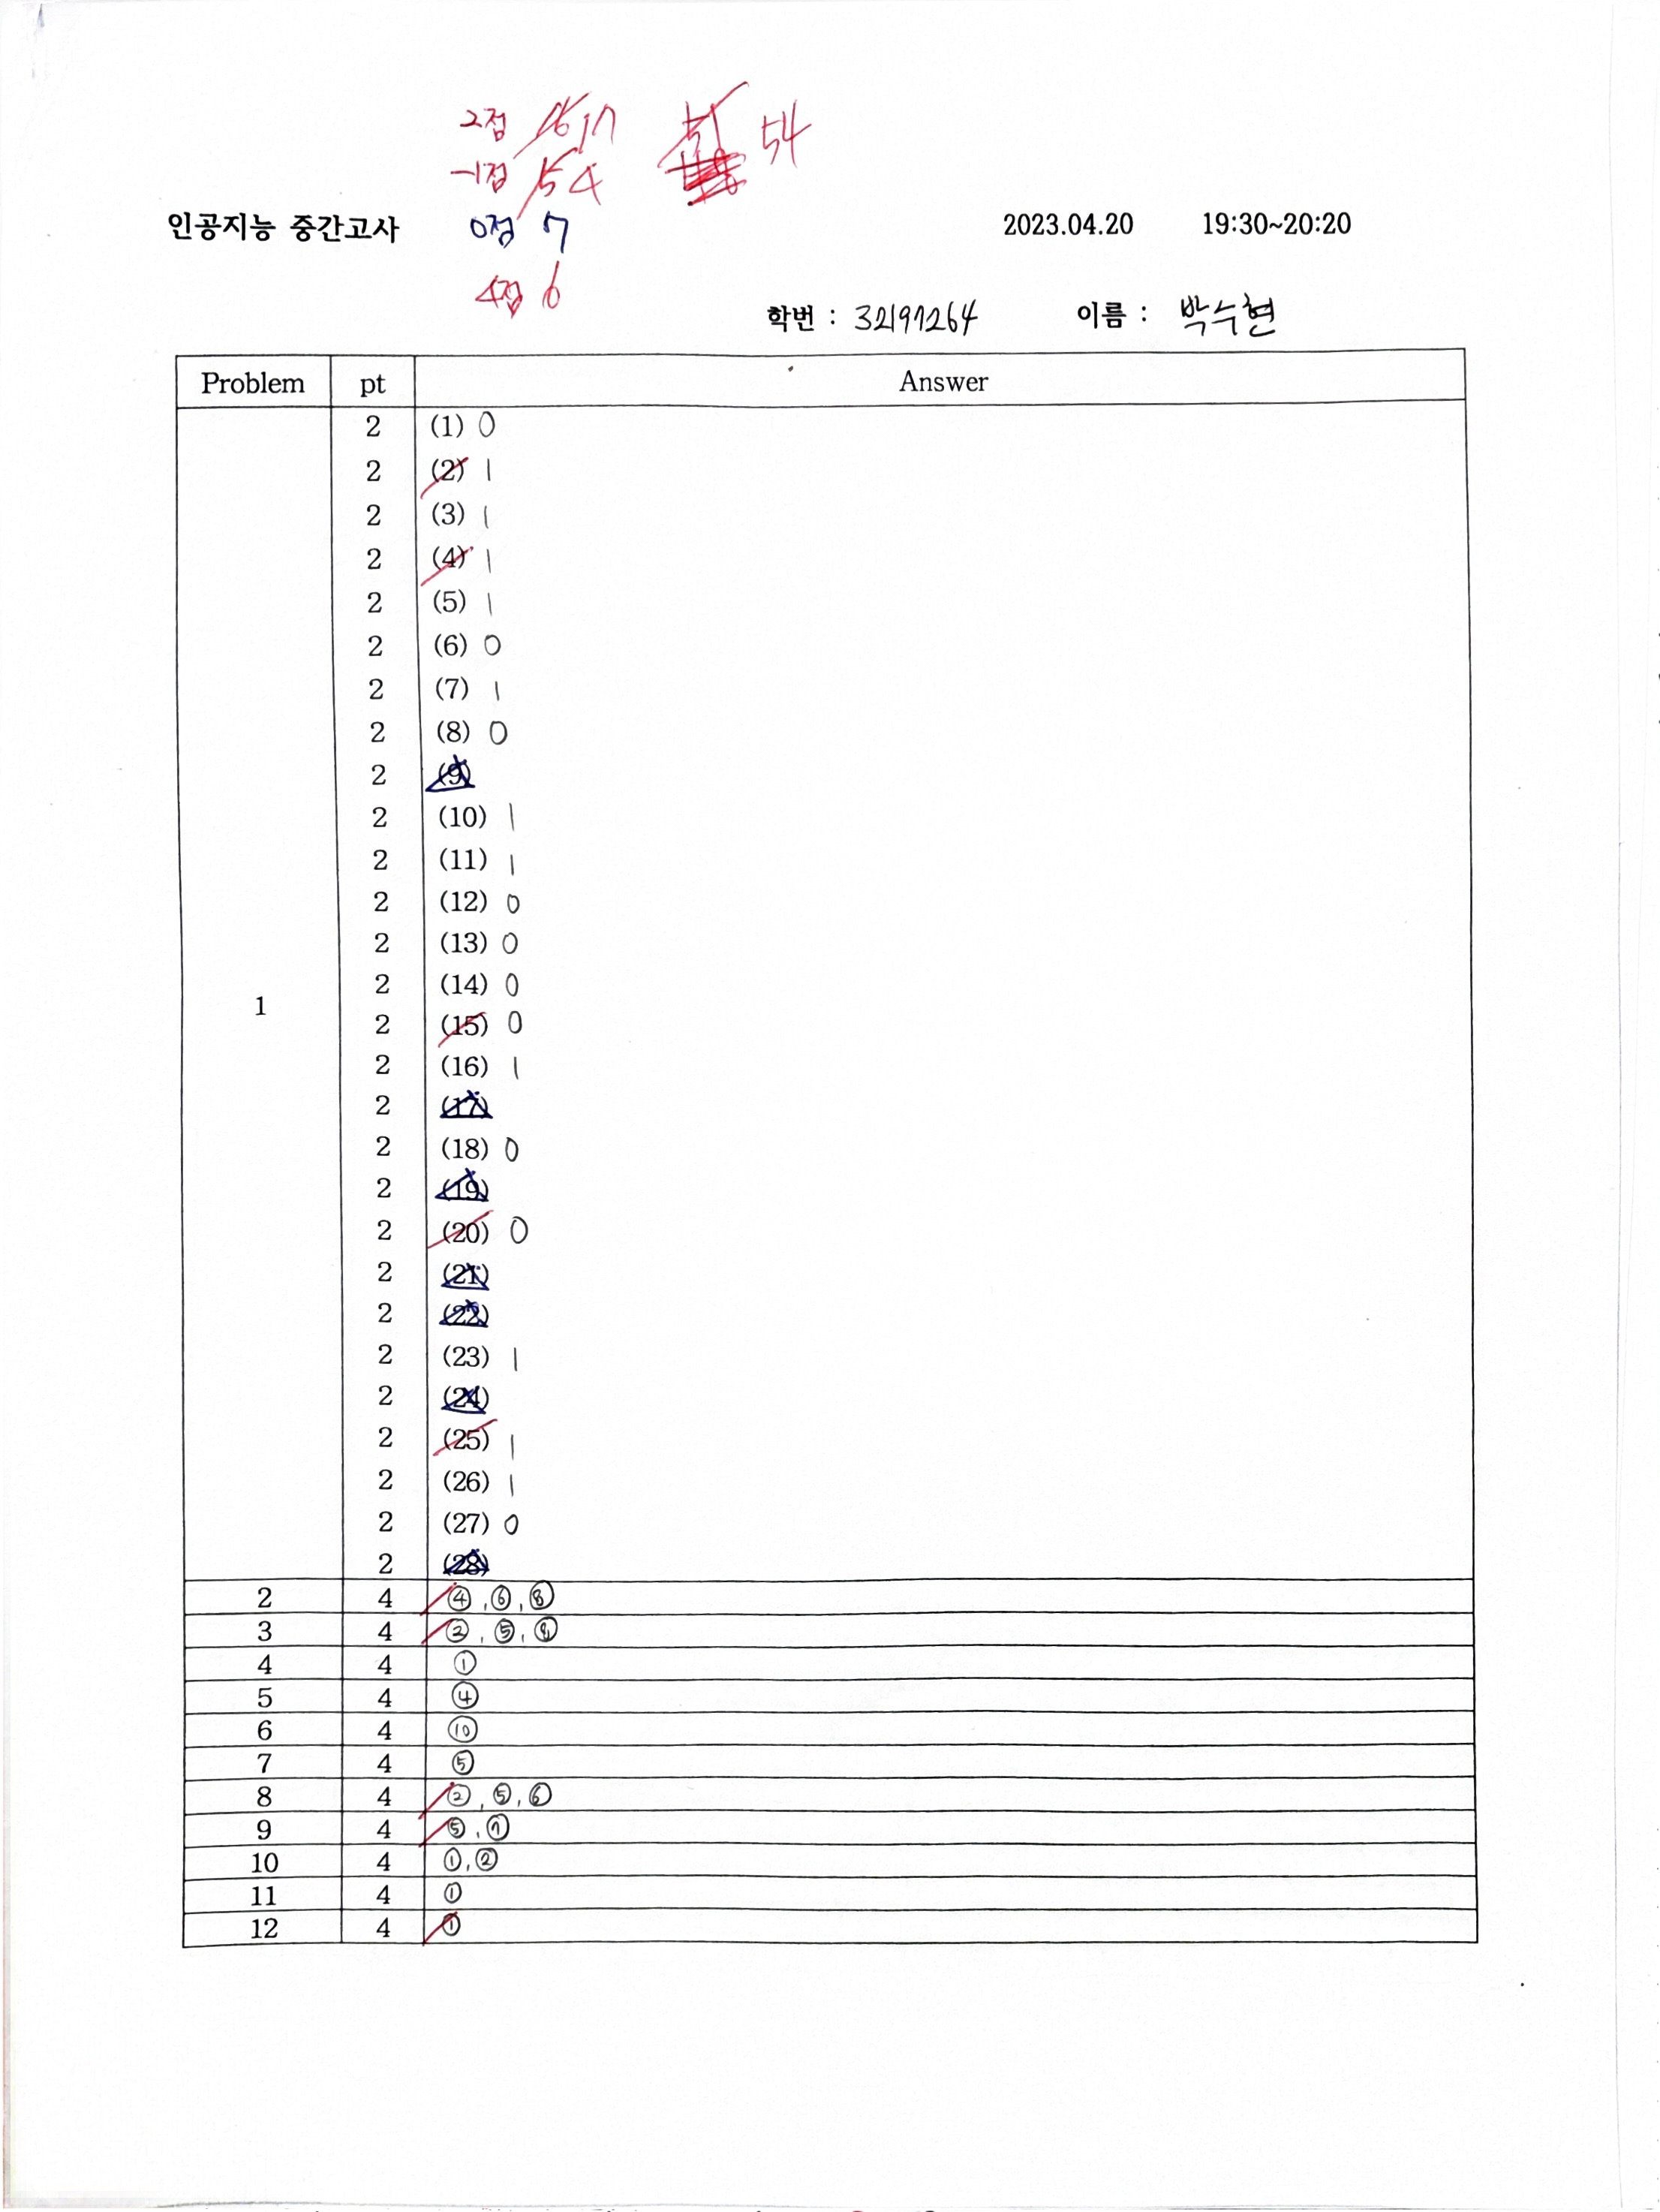 2점 16 17 51 54
-1점 5 4
인공지능 중간고사 0점 7 2023.04.20 19:30~20:20
4점 6
학번 : 32197264 이름 : 박수현
Problem pt Answer
2 (1) 0
2 (2) 1
2 (3) 1
2 (4) 1
2 (5) 1
2 (6) 0
2 (7) 1
2 (8) 0
2 (9)
2 (10) 1
2 (11) 1
2 (12) 0
2 (13) 0
2 (14) 0
1
2 (15) 0
2 (16) 1
2 (17)
2 (18) 0
2 (19)
2 (20) 0
2 (21)
2 (22)
2 (23) 1
2 (24)
2 (25) 1
2 (26) 1
2 (27) 0
2 (28)
2 4 ④, ⑥, ⑧
3 4 ②, ⑤, ⑧
4 4 ①
5 4 ④
6 4 ⑩
7 4 ⑤
8 4 ②, ⑤, ⑥
9 4 ⑤, ⑦
10 4 ①, ②
11 4 ①
12 4 ①